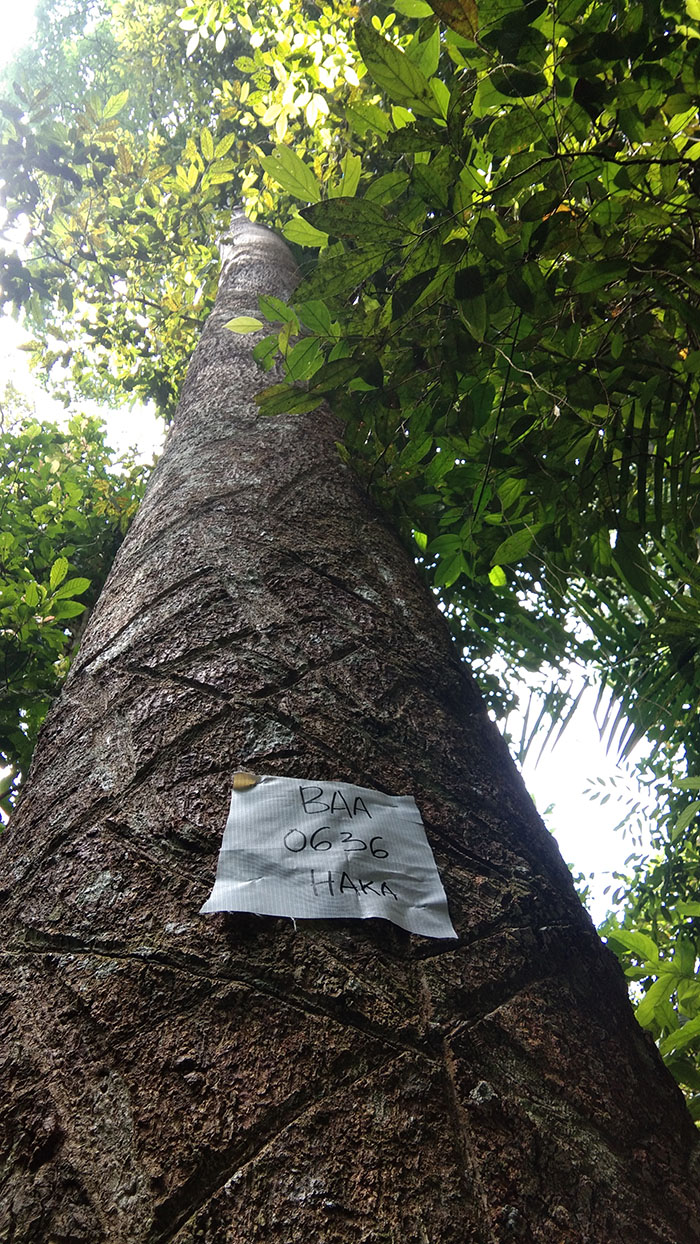 BAA
0636
HAKA